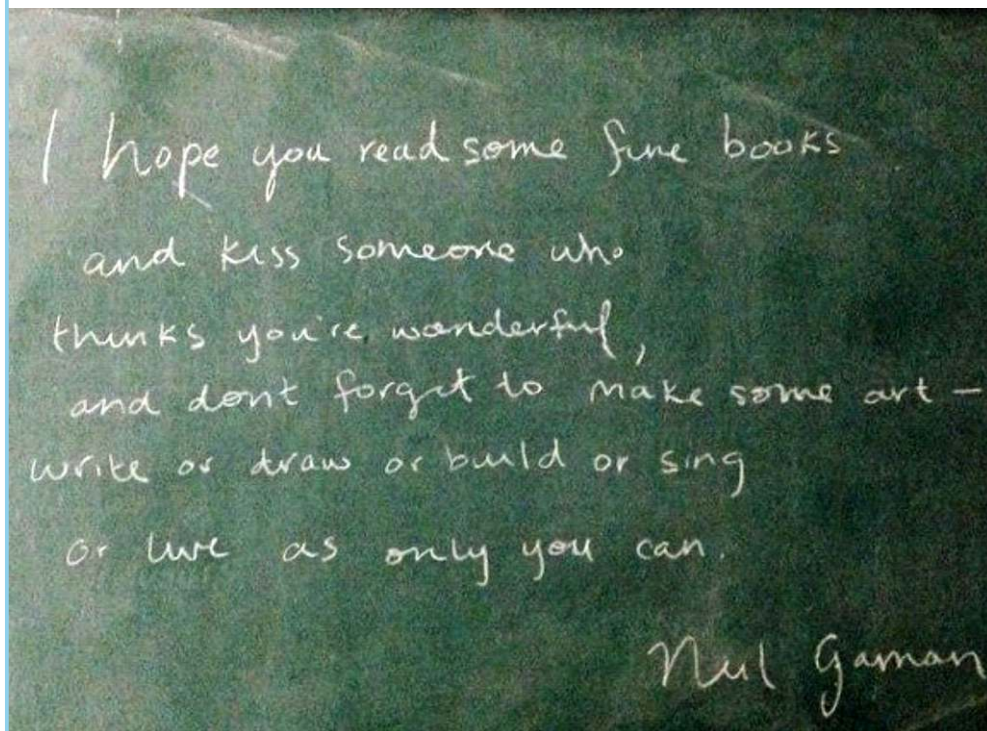 I hope you read some fine books
and kiss someone who
thinks you're wonderful,
and dont forget to make some art –
write or draw or build or sing
or live as only you can.
Neil Gaiman